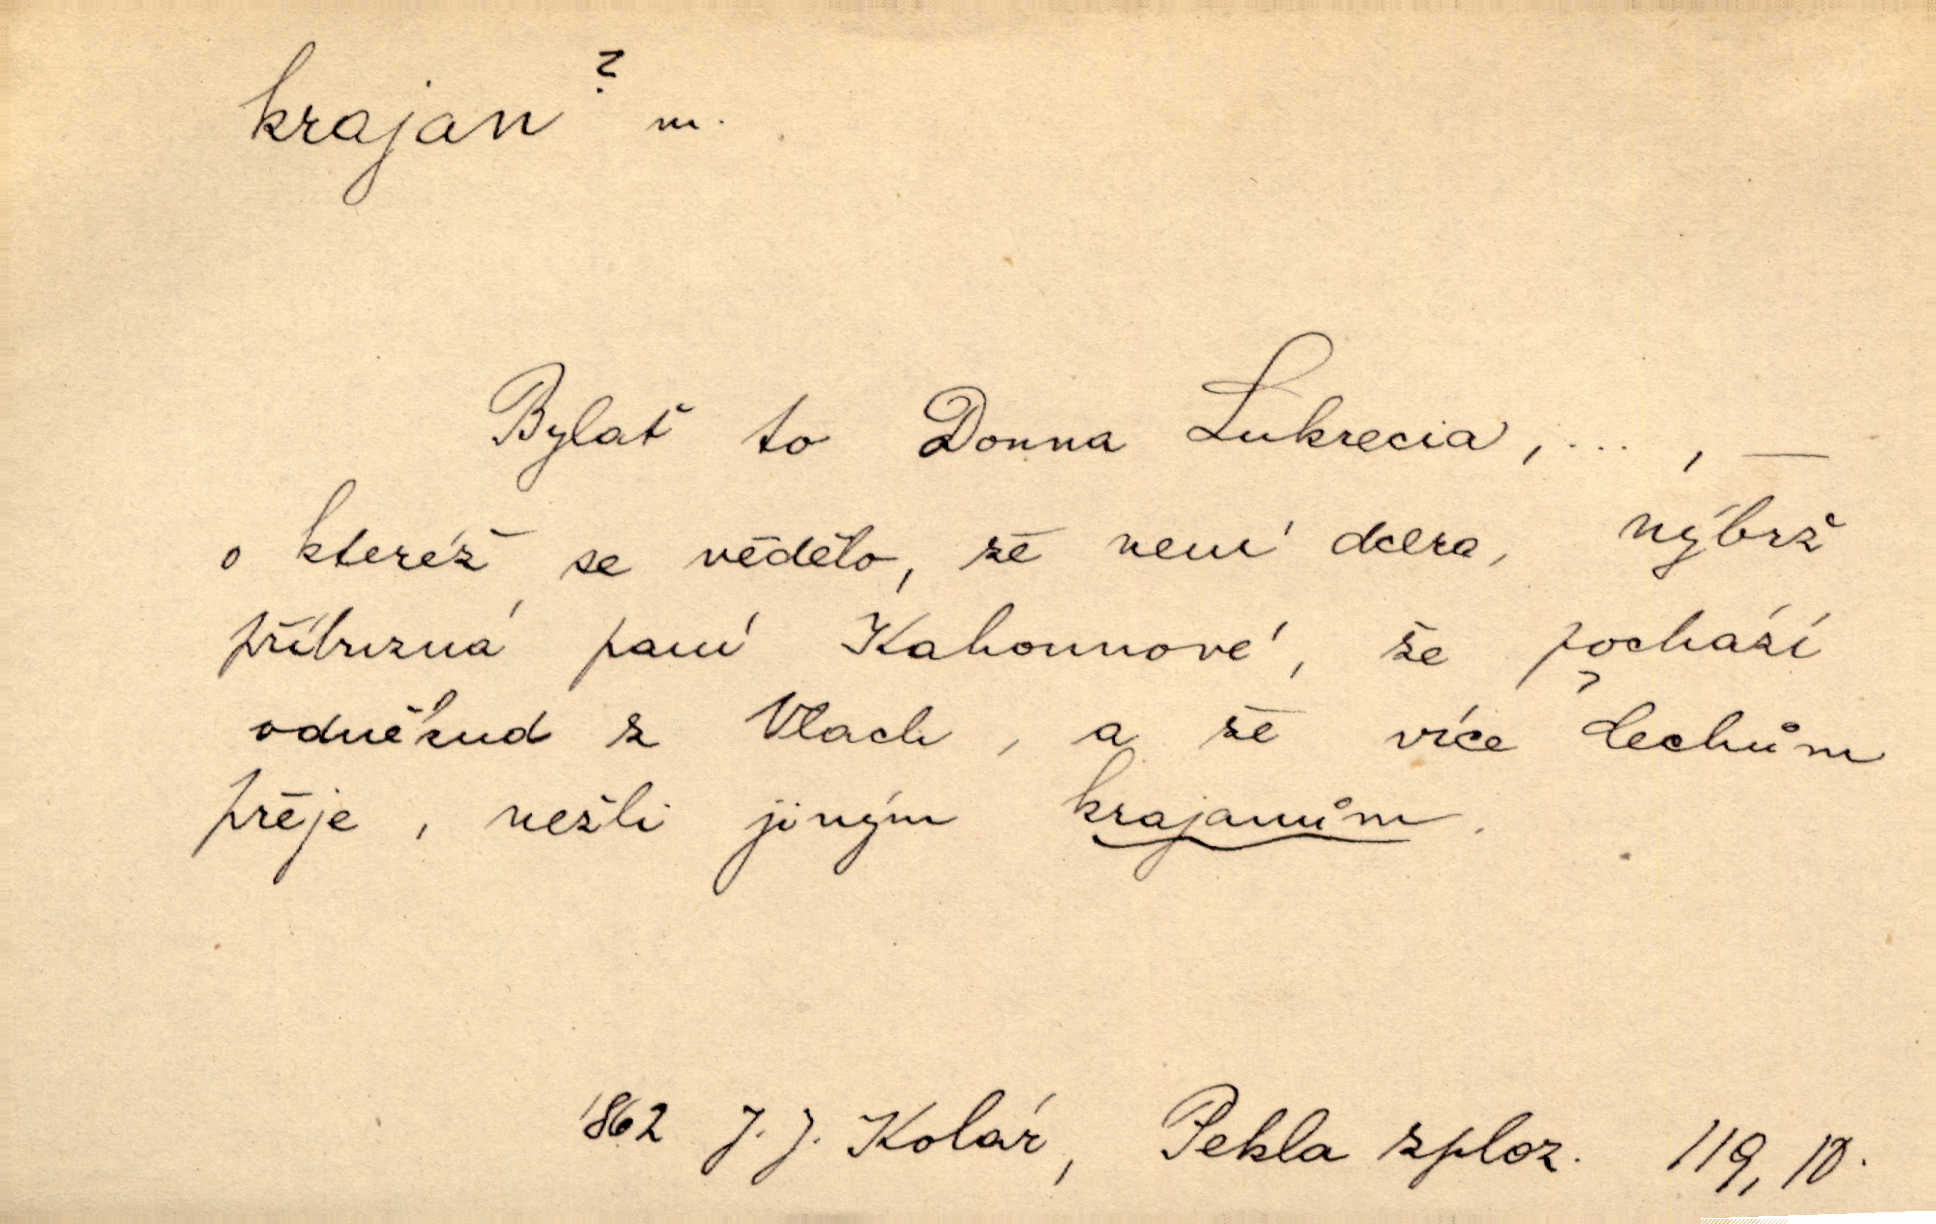 krajan ? m.
Bylať to Donna Lukrecia, ... , —
o kteréž se vědělo, že není dcera, nýbrž
příbuzná paní Kahounové, že pochází
odněkud z Vlach, a že více Čechům
přeje, nežli jiným krajanům.
1862 J. J. Kolár, Pekla zploz. 119, 10.